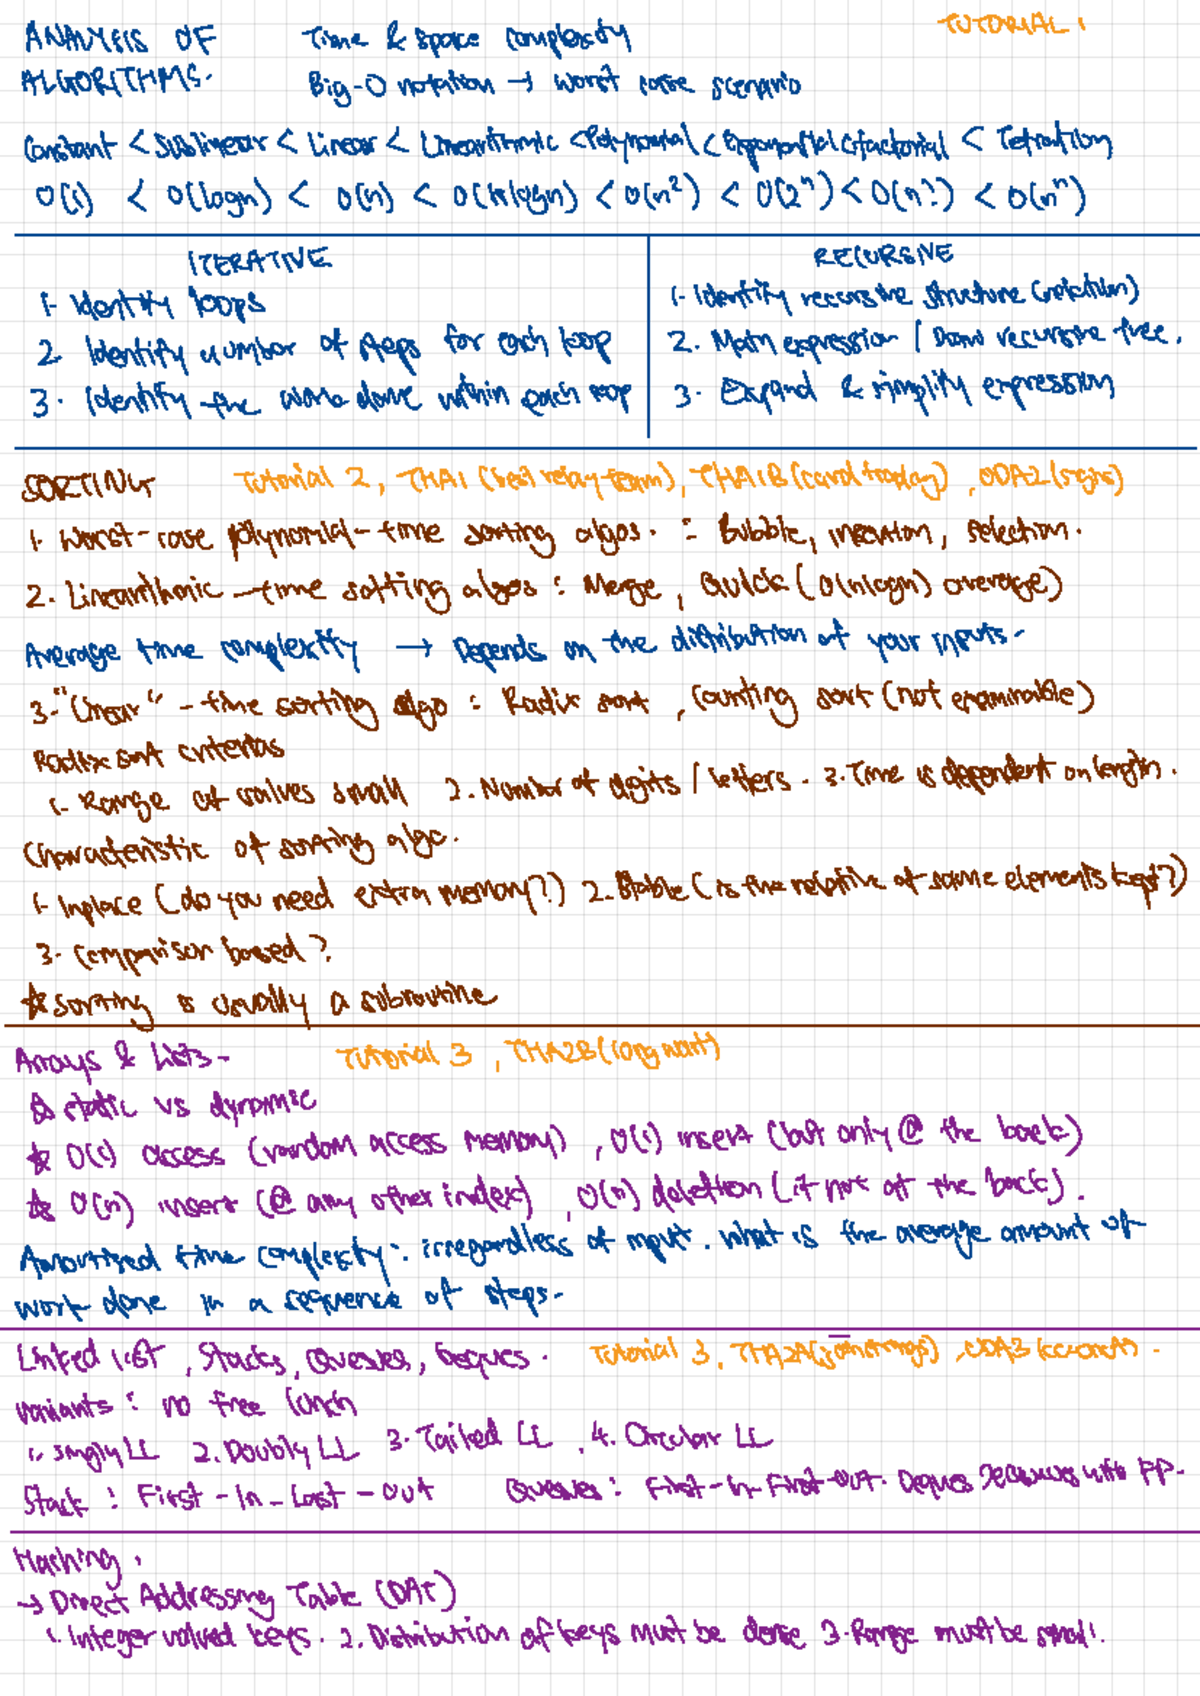 TUTORIAL 1
ANALYSIS OF Time & space complexity
ALGORITHMS. Big-O notation → worst case scenario
Constant < Sublinear < Linear < Linearithmic < Polynomial < Exponential < factorial < Tetration
O(1) < O(logn) < O(n) < O(nlogn) < O(n²) < O(2ⁿ) < O(n!) < O(nⁿ)
ITERATIVE
1. Identify loops
2. Identify number of steps for each loop
3. Identify the work done within each loop
RECURSIVE
1. Identify recursive structure (relation)
2. Math expression / Draw recursive tree.
3. Expand & simplify expression
SORTING Tutorial 2, THA1 (best relay team), THA1B (card trading), ODA2 (sghs)
1. Worst-case polynomial-time sorting algos. : Bubble, insertion, selection.
2. Linearithmic-time sorting algos : Merge, Quick (O(nlogn) average)
Average time complexity → Depends on the distribution of your inputs.
3. "Linear"-time sorting algo : Radix sort, Counting sort (not examinable)
Radix sort criterias
1. Range of values small 2. Number of digits / letters. 3. Time is dependent on length.
Characteristic of sorting algo.
1. Inplace (do you need extra memory?) 2. Stable (is the relative of same elements kept?)
3. Comparison based?
☆ Sorting is usually a subroutine
Arrays & Lists- Tutorial 3, THA2B (long wait)
☆ static vs dynamic
☆ O(1) access (random access memory), O(1) insert (but only @ the back)
☆ O(n) insert (@ any other index), O(n) deletion (if not at the back).
Amortized time complexity: irregardless of input. what is the average amount of
work done in a sequence of steps.
Linked list, Stacks, Queues, Deques. Tutorial 3, THA2A (joinstrings), ODA3
variants : no free lunch
1. Singly LL 2. Doubly LL 3. Tailed LL, 4. Circular LL
Stack : First-In-Last-Out Queues : First-In-First-Out. Deques
Hashing.
→ Direct Addressing Table (DAT)
1. Integer valued keys. 2. Distribution of keys must be dense 3. Range must be small.